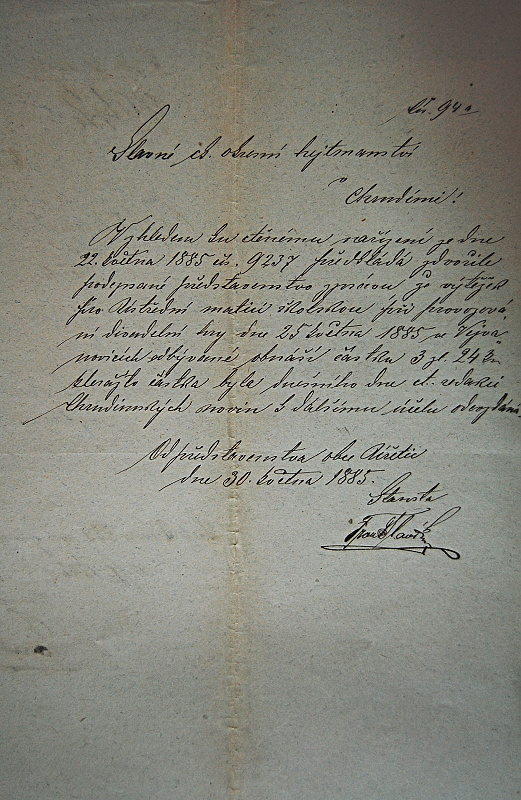 čís. 94
Slavné c.k. okresní hejtmanství
v
Chrudimi!
Vzhledem ku ctěnému nařízení ze dne
22. května 1885 čís. 9237 předkládá zdvořile
podepsané představenstvo zprávu že výtěžek
pro Ústřední matici školskou při provozová
ní divadelní hry dne 25 května 1885 ve
novicích odbývané obnáší částka 3 zl. 24 kr
kterážto částka byla dnešního dne ct. redakci
Chrudimských novin k dalšímu účelu odevzdána.
Od představenstva obce Úřetic
dne 30. května 1885.
Starosta